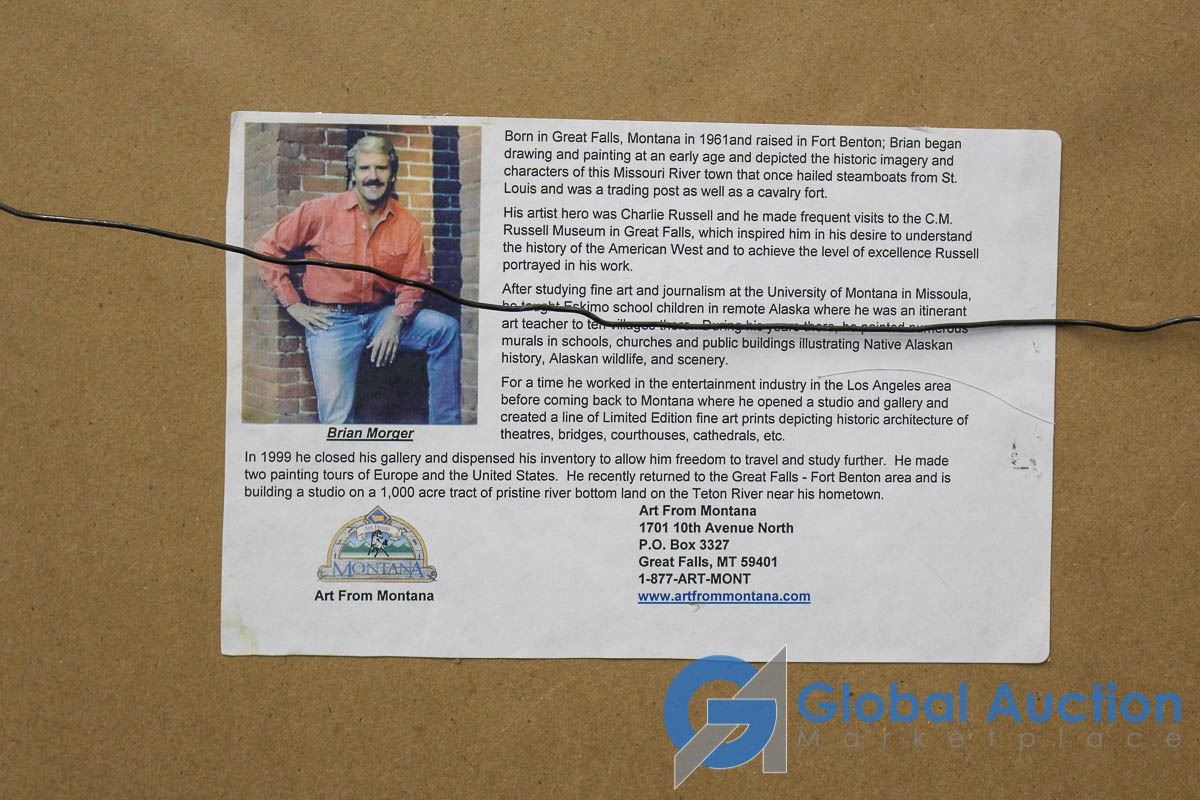 Born in Great Falls, Montana in 1961and raised in Fort Benton; Brian began
drawing and painting at an early age and depicted the historic imagery and
characters of this Missouri River town that once hailed steamboats from St.
Louis and was a trading post as well as a cavalry fort.
His artist hero was Charlie Russell and he made frequent visits to the C.M.
Russell Museum in Great Falls, which inspired him in his desire to understand
the history of the American West and to achieve the level of excellence Russell
portrayed in his work.
After studying fine art and journalism at the University of Montana in Missoula,
he taught Eskimo school children in remote Alaska where he was an itinerant
art teacher to ten villages there. During his years there, he painted numerous
murals in schools, churches and public buildings illustrating Native Alaskan
history, Alaskan wildlife, and scenery.
For a time he worked in the entertainment industry in the Los Angeles area
before coming back to Montana where he opened a studio and gallery and
created a line of Limited Edition fine art prints depicting historic architecture of
theatres, bridges, courthouses, cathedrals, etc.
Brian Morger
In 1999 he closed his gallery and dispensed his inventory to allow him freedom to travel and study further. He made
two painting tours of Europe and the United States. He recently returned to the Great Falls - Fort Benton area and is
building a studio on a 1,000 acre tract of pristine river bottom land on the Teton River near his hometown.
Art From
MONTANA
Art From Montana
Art From Montana
1701 10th Avenue North
P.O. Box 3327
Great Falls, MT 59401
1-877-ART-MONT
www.artfrommontana.com
Global Auction
Marketplace